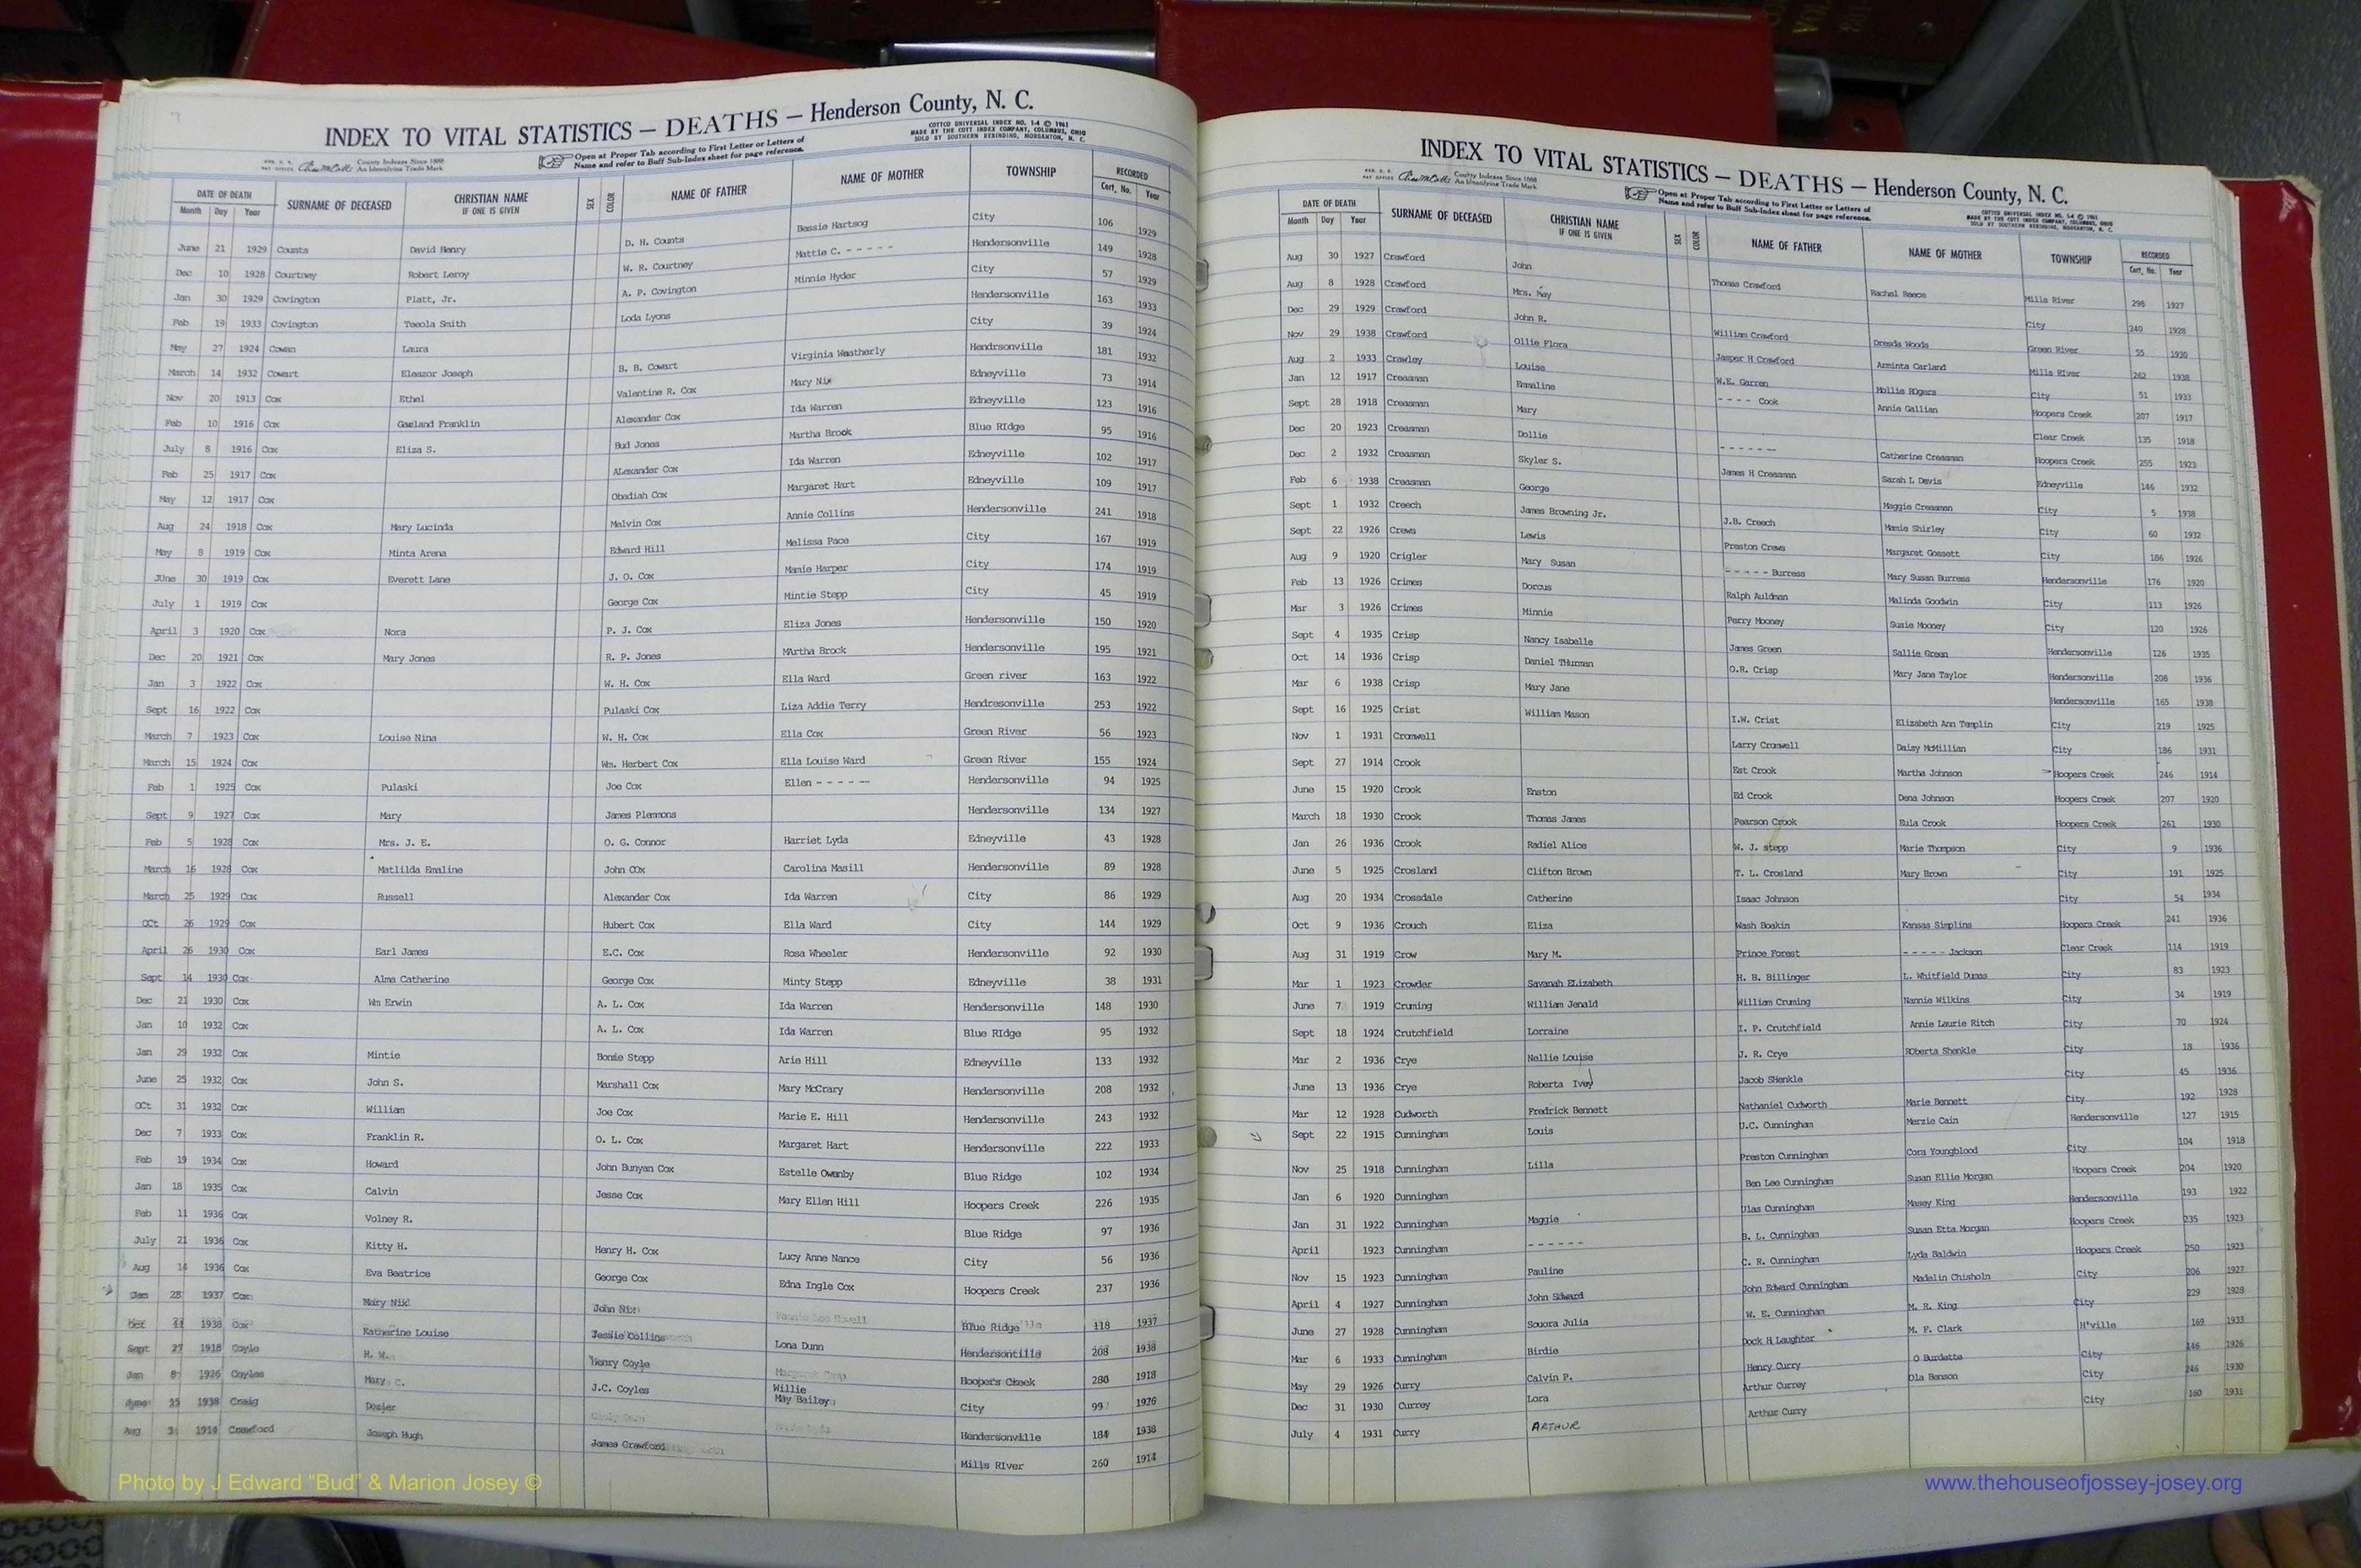 INDEX TO VITAL STATISTICS — DEATHS — Henderson County, N. C.
COTTCO UNIVERSAL INDEX NO. 1-4 © 1961
MADE BY THE COTT INDEX COMPANY, COLUMBUS, OHIO
SOLD BY SOUTHERN REBINDING, MORGANTON, N. C.
County Indexes Since 1888
An Identifying Trade Mark
Open at Proper Tab according to First Letter or Letters of
Name and refer to Buff Sub-Index sheet for page reference.
DATE OF DEATH SURNAME OF DECEASED CHRISTIAN NAME IF ONE IS GIVEN SEX COLOR NAME OF FATHER NAME OF MOTHER TOWNSHIP RECORDED
Month Day Year Cert. No. Year
June 21 1929 Counts David Henry D. H. Counts Bessie Hartsog City 106 1929
Dec 10 1928 Courtney Robert Leroy W. R. Courtney Mattie C. - - - - - Hendersonville 149 1928
Jan 30 1929 Covington Platt, Jr. A. P. Covington Minnie Hyder City 57 1929
Feb 19 1933 Covington Teeola Smith Loda Lyons Hendersonville 163 1933
May 27 1924 Cowan Laura City 39 1924
March 14 1932 Cowart Eleazor Joseph B. B. Cowart Virginia Weatherly Hendrsonville 181 1932
Nov 20 1913 Cox Ethel Valentine R. Cox Mary Nix Edneyville 73 1914
Feb 10 1916 Cox Garland Franklin Alexander Cox Ida Warren Edneyville 123 1916
July 8 1916 Cox Eliza S. Bud Jones Martha Brock Blue RIdge 95 1916
Feb 25 1917 Cox ALexander Cox Ida Warren Edneyville 102 1917
May 12 1917 Cox Obediah Cox Margaret Hart Edneyville 109 1917
Aug 24 1918 Cox Mary Lucinda Melvin Cox Annie Collins Hendersonville 241 1918
May 8 1919 Cox Minta Arena Edward Hill Melissa Pace City 167 1919
JUne 30 1919 Cox Everett Lane J. O. Cox Mamie Harper City 174 1919
July 1 1919 Cox George Cox Mintie Stepp City 45 1919
April 3 1920 Cox Nora P. J. Cox Eliza Jones Hendersonville 150 1920
Dec 20 1921 Cox Mary Jones R. P. Jones MArtha Brock Hendersonville 195 1921
Jan 3 1922 Cox W. H. Cox Ella Ward Green river 163 1922
Sept 16 1922 Cox Pulaski Cox Liza Addie Terry Hendresonville 253 1922
March 7 1923 Cox Louise Nina W. H. Cox Ella Cox Green River 56 1923
March 15 1924 Cox Wm. Herbert Cox Ella Louise Ward Green River 155 1924
Feb 1 1925 Cox Pulaski Joe Cox Ellen - - - - - Hendersonville 94 1925
Sept 9 1927 Cox Mary James Plemmons Hendersonville 134 1927
Feb 5 1928 Cox Mrs. J. E. O. G. Connor Harriet Lyda Edneyville 43 1928
March 16 1928 Cox Matlilda Emaline John COx Carolina Masill Hendersonville 89 1928
March 25 1929 Cox Russell Alexander Cox Ida Warren City 86 1929
OCt 26 1929 Cox Hubert Cox Ella Ward City 144 1929
April 26 1930 Cox Earl James E.C. Cox Rosa Wheeler Hendersonville 92 1930
Sept 14 1930 Cox Alma Catherine George Cox Minty Stepp Edneyville 38 1931
Dec 21 1930 Cox Wm Erwin A. L. Cox Ida Warren Hendersonville 148 1930
Jan 10 1932 Cox A. L. Cox Ida Warren Blue RIdge 95 1932
Jan 29 1932 Cox Mintie Bonnie Stepp Arie Hill Edneyville 133 1932
June 25 1932 Cox John S. Marshall Cox Mary McCrary Hendersonville 208 1932
OCt 31 1932 Cox William Joe Cox Marie E. Hill Hendersonville 243 1932
Dec 7 1933 Cox Franklin R. O. L. Cox Margaret Hart Hendersonville 222 1933
Feb 19 1934 Cox Howard John Bunyan Cox Estelle Owenby Blue Ridge 102 1934
Jan 18 1935 Cox Calvin Jesse Cox Mary Ellen Hill Hoopers Creek 226 1935
Feb 11 1936 Cox Volney R. Blue Ridge 97 1936
July 21 1936 Cox Kitty H. Henry H. Cox Lucy Anne Nance City 56 1936
Aug 14 1936 Cox Eva Beatrice George Cox Edna Ingle Cox Hoopers Creek 237 1936
Jan 28 1937 Cox Mary Nix John Nix Blue Ridge 118 1937
Oct 1938 Cox Katherine Louise Jessie Collins Lona Dunn 208 1938
Sept 27 1918 Coyle H. W. Henry Coyle Hoopers Creek 280 1918
Jan 8 1926 Coyles Mary C. J.C. Coyles Willie May Bailey City 99 1926
June 25 1938 Craig Dozier Hendersonville 184 1938
Aug 1914 Crawford Joseph Hugh James Crawford Mills RIver 260 1914
INDEX TO VITAL STATISTICS — DEATHS — Henderson County, N. C.
County Indexes Since 1888
An Identifying Trade Mark
Open at Proper Tab according to First Letter or Letters of
Name and refer to Buff Sub-Index sheet for page reference.
COTTCO UNIVERSAL INDEX NO. 1-4 © 1961
MADE BY THE COTT INDEX COMPANY, COLUMBUS, OHIO
SOLD BY SOUTHERN REBINDING, MORGANTON, N. C.
DATE OF DEATH SURNAME OF DECEASED CHRISTIAN NAME IF ONE IS GIVEN SEX COLOR NAME OF FATHER NAME OF MOTHER TOWNSHIP RECORDED
Month Day Year Cert. No. Year
Aug 30 1927 Crawford John Thomas Crawford Rachel Reece Mills River 298 1927
Aug 8 1928 Crawford Mrs. May City 240 1928
Dec 29 1929 Crawford John R. William Crawford Dreeda Woods Green River 55 1930
Nov 29 1938 Crawford Ollie Flora Jasper H Crawford Arminta Carland Mills RIver 262 1938
Aug 2 1933 Crawley Louise W.E. Garren Mollie ROgers City 51 1933
Jan 12 1917 Creasman Emmaline - - - - Cook Annie Gallian Hoopers Creek 207 1917
Sept 28 1918 Creasman Mary Clear Creek 135 1918
Dec 20 1923 Creasman Dollie - - - - - - - Catherine Creasman Hoopers Creek 255 1923
Dec 2 1932 Creasman Skyler S. James H Creasman Sarah L Davis Edneyville 146 1932
Feb 6 1938 Creasman George Maggie Creasman City 5 1938
Sept 1 1932 Creech James Browning Jr. J.B. Creech Mamie Shirley City 60 1932
Sept 22 1926 Crews Lewis Preston Crews Margaret Gossett City 186 1926
Aug 9 1920 Crigler Mary Susan - - - - - Burress Mary Susan Burress Hendersonville 176 1920
Feb 13 1926 Crimes Dorcus Ralph Auldman Malinda Goodwin City 113 1926
Mar 3 1926 Crimes Minnie Perry Mooney Susie Mooney City 120 1926
Sept 4 1935 Crisp Nancy Isabelle James Green Sallie Green Hendersonville 126 1935
Oct 14 1936 Crisp Daniel THurman O.R. Crisp Mary Jane Taylor Hendersonville 208 1936
Mar 6 1938 Crisp Mary Jane Hendersonville 165 1938
Sept 16 1925 Crist William Mason I.W. Crist Elizabeth Ann Templin City 219 1925
Nov 1 1931 Cromwell Larry Cromwell Daisy McMillian City 186 1931
Sept 27 1914 Crook Est Crook Martha Johnson Hoopers Creek 246 1914
June 15 1920 Crook Enston Ed Crook Dena Johnson Hoopers Creek 207 1920
March 18 1930 Crook Thomas James Pearson Crook Eula Crook Hoopers Creek 261 1930
Jan 26 1936 Crook Radiel Alice W. J. stepp Marie Thompson City 9 1936
June 5 1925 Crosland Clifton Brown T. L. Crosland Mary Brown City 191 1925
Aug 20 1934 Crossdale Catherine Isaac Johnson City 54 1934
Oct 9 1936 Crouch Eliza Wash Boakin Kansas Simplins Hoopers Creek 241 1936
Aug 31 1919 Crow Mary M. Prince Forest - - - - - Jackson Clear Creek 114 1919
Mar 1 1923 Crowder Savanah ELizabeth H. B. Billinger L. Whitfield Dumas City 83 1923
June 7 1919 Cruming William Jenald William Cruming Nannie Wilkins City 34 1919
Sept 18 1924 Crutchfield Lorraine I. P. Crutchfield Annie Laurie Ritch City 70 1924
Mar 2 1936 Crye Nellie Louise J. R. Crye ROberta Shenkle City 18 1936
June 13 1936 Crye Roberta Ivey Jacob SHenkle City 45 1936
Mar 12 1928 Cudworth Fredrick Bennett Nathaniel Cudworth Marie Bennett City 192 1928
Sept 22 1915 Cunningham Louis U.C. Cunningham Merzie Cain Hendersonville 127 1915
Nov 25 1918 Cunningham Lilla Preston Cunningham Cora Youngblood City 104 1918
Jan 6 1920 Cunningham Ben Lee Cunningham Susan Ellie Morgan Hoopers Creek 204 1920
Jan 31 1922 Cunningham Maggie Ulas Cunningham Masey King Hendersonville 193 1922
April 1923 Cunningham - - - - - - B. L. Cunningham Susan Etta Morgan Hoopers Creek 235 1923
Nov 15 1923 Cunningham Pauline C. R. Cunningham Lyda Baldwin Hoopers Creek 250 1923
April 4 1927 Cunningham John Edward John Edward Cunningham Madelin Chisholn City 206 1927
June 27 1928 Cunningham Souora Julia W. E. Cunningham M. R. King City 229 1928
Mar 6 1933 Cunningham Birdie Dock H Laughter M. F. Clark H'ville 169 1933
May 29 1926 Curry Calvin P. Henry Curry O Burdette City 146 1926
Dec 31 1930 Currey Lora Arthur Currey Ola Benson City 246 1930
July 4 1931 Curry ARTHUR Arthur Curry City 160 1931
Photo by J Edward “Bud” & Marion Josey ©
www.thehouseofjossey-josey.org